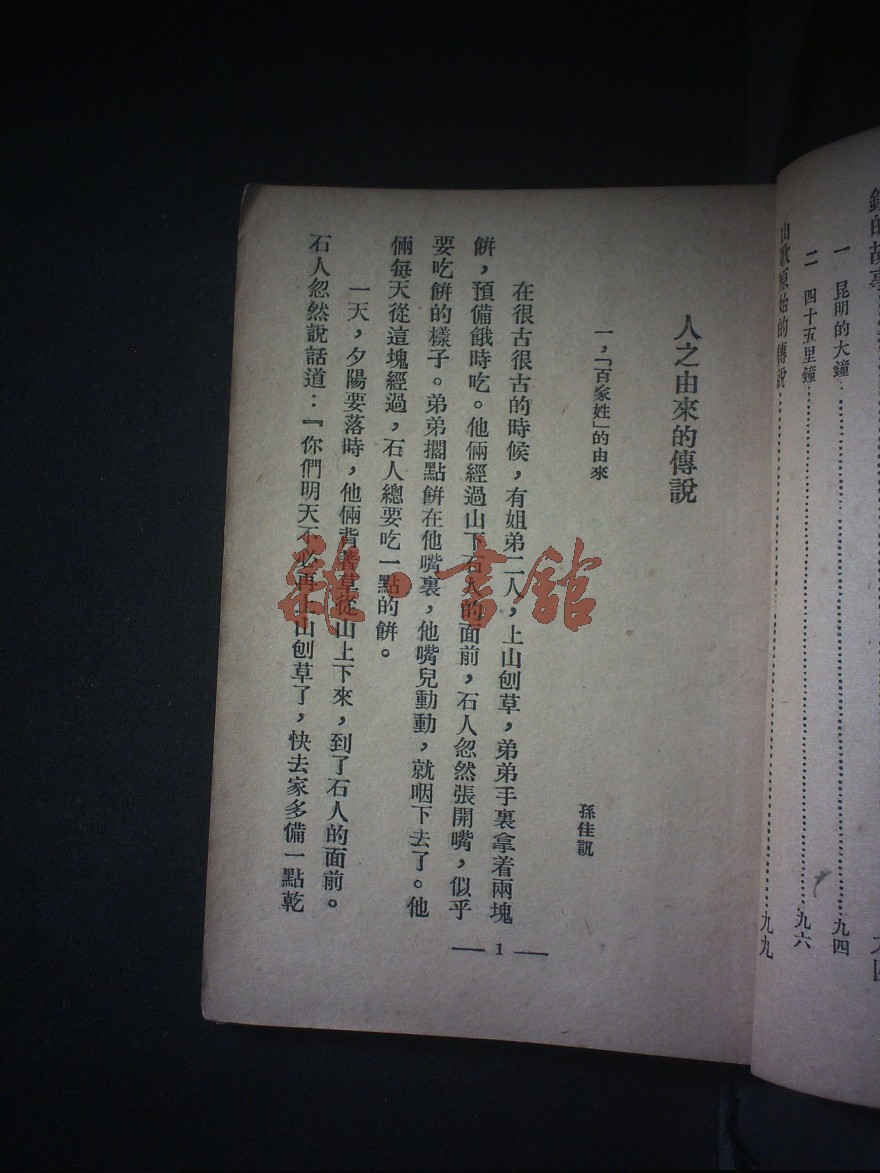 鐘的故事
一 昆明的大鐘……九四
二 四十五里鐘……九六
山歌原始的傳說……九九
人之由來的傳說
一，「百家姓」的由來
孫佳訊
在很古很古的時候，有姐弟二人，上山刨草，弟弟手裏拿着兩塊
餅，預備餓時吃。他倆經過山下石人的面前，石人忽然張開嘴，似乎
要吃餅的樣子。弟弟擱點餅在他嘴裏，他嘴兒動動，就咽下去了。他
倆每天從這塊經過，石人總要吃一點的餅。
一天，夕陽要落時，他倆背着草從山上下來，到了石人的面前。
石人忽然說話道：「你們明天不必再上山刨草了，快去家多備一點乾
— 1 —
雜·書館